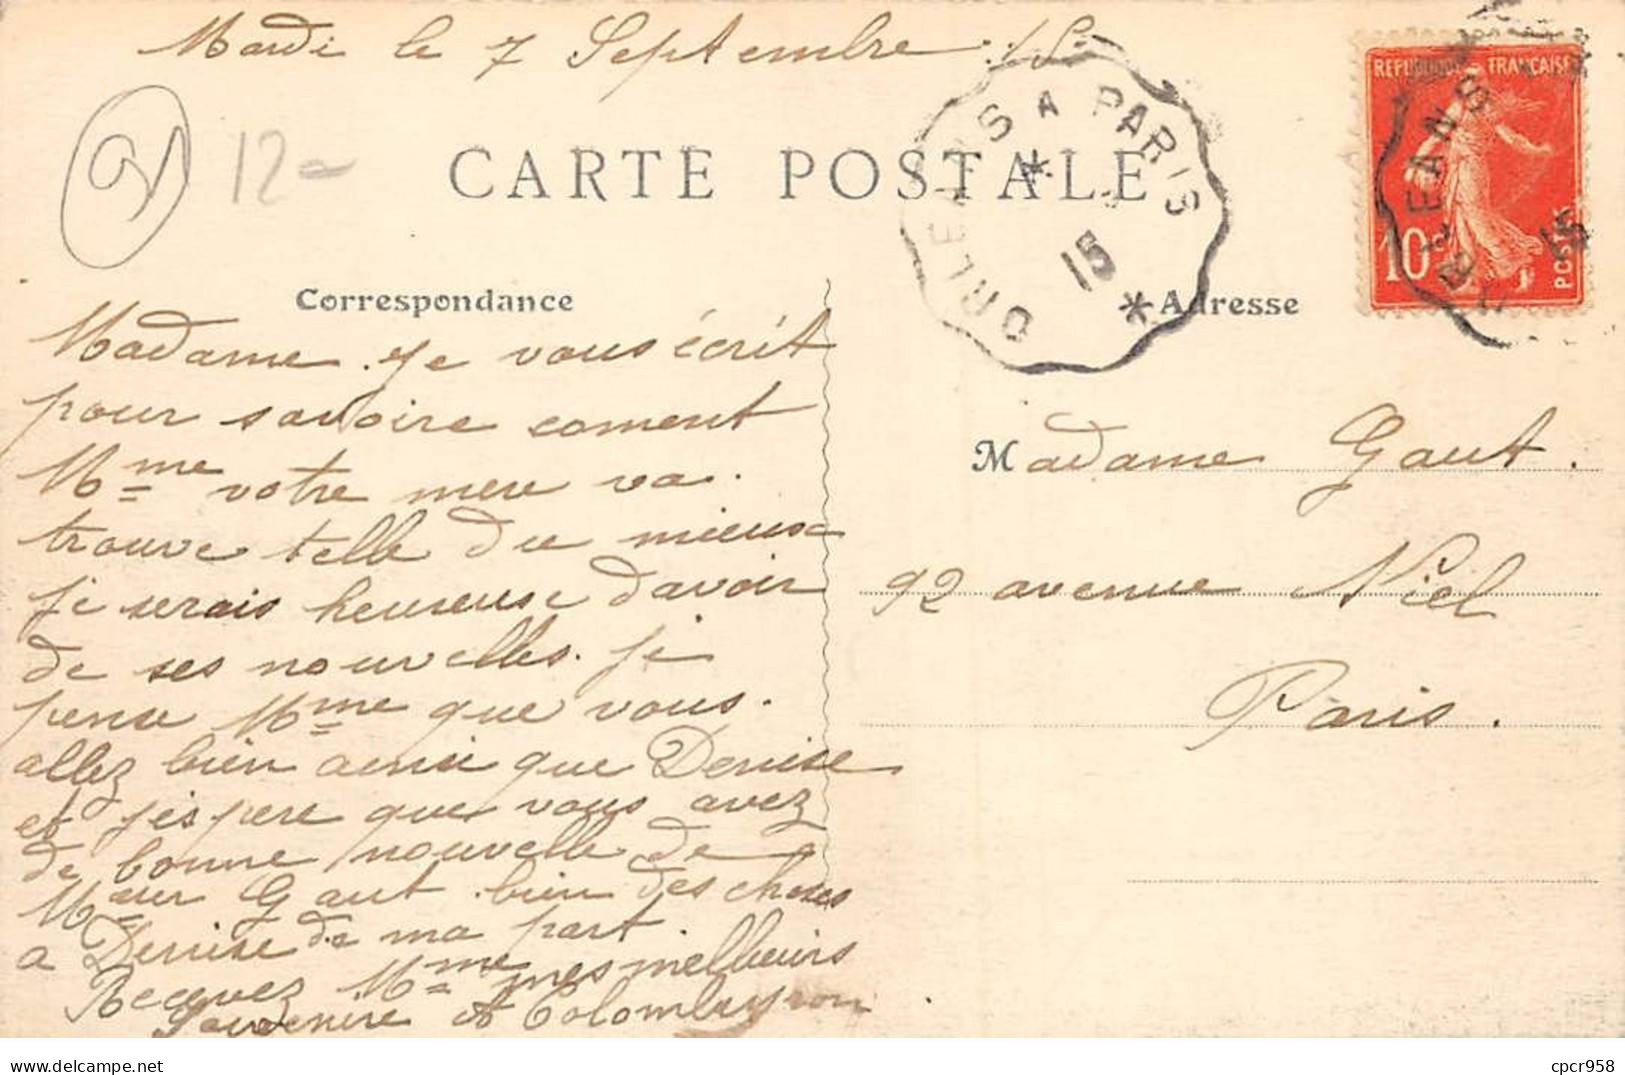 Mardi le 7 Septembre 15
91
12-
CARTE POSTALE
ORLEANS A PARIS
15
REPUBLIQUE FRANÇAISE
10c
POSTES
ORLEANS
15
Correspondance
Adresse
Madame. je vous écrit
pour savoire coment
Mme votre mere va.
trouve telle du mieuse
je serais heureuse davoir
de ses nouvelles. je
pense Mme que vous.
allez bien ainsi que Denise
et j'espere que vous avez
de bonne nouvelle de
Mseur Gaut. bien des choses
a Denise de ma part.
Recevez Mme mes meilleurs
Souvenire A Colombeyron
Madame Gaut.
92 avenue Niel
Paris.
cpcr958